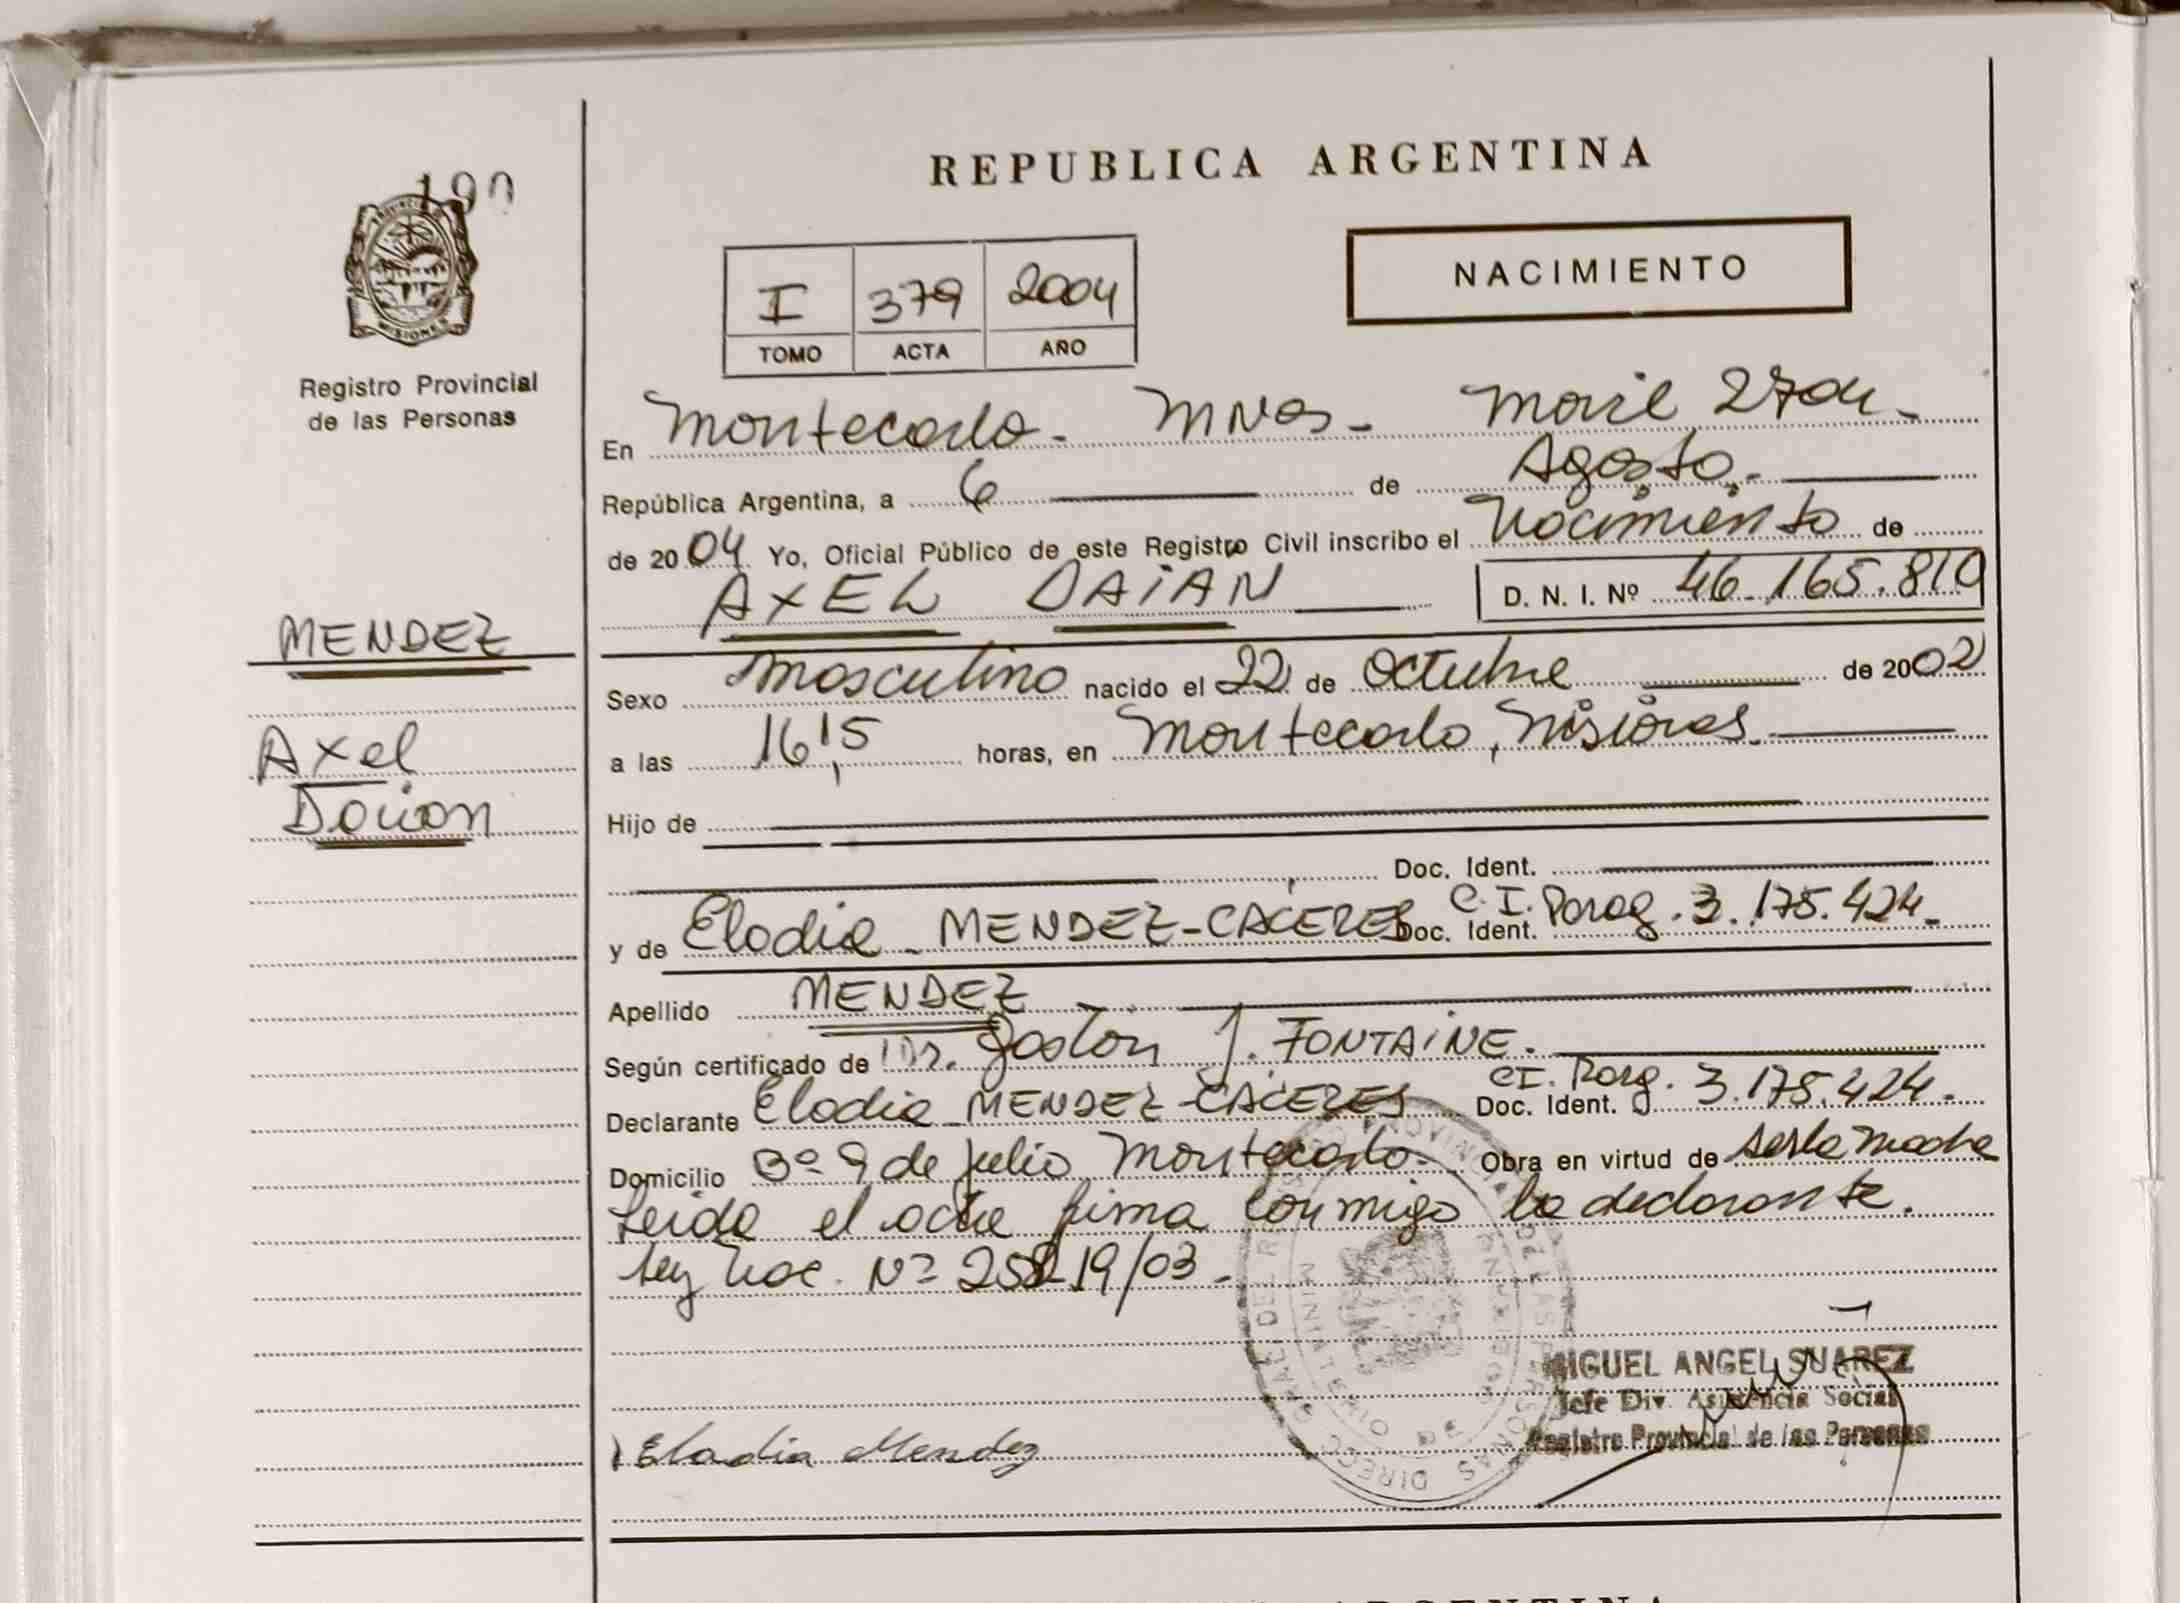 190
REPUBLICA ARGENTINA
PROVINCIA MISIONES
Registro Provincial
de las Personas
NACIMIENTO
I 379 2004
TOMO ACTA AÑO
En Montecarlo - MNes - Movil 2704 -
República Argentina, a 6 de Agosto.-
de 2004 Yo, Oficial Público de este Registro Civil inscribo el Nacimiento de
AXEL DAIAN D. N. I. Nº 46.165.810
MENDEZ
Axel
Daian
Sexo Masculino nacido el 22 de Octubre de 2002
a las 16,15 horas, en Montecarlo, Misiones.-
Hijo de
Doc. Ident.
y de Elodia - MENDEZ-CACERES Doc. Ident. C.I. Parag. 3.175.424.-
Apellido MENDEZ
Según certificado de Dr. Gaston J. FONTAINE.
Declarante Elodia MENDEZ-CACERES Doc. Ident. CI. Parg. 3.175.424.-
Domicilio Bº 9 de Julio Montecarlo.- Obra en virtud de ser la madre
Leida el acta firma conmigo la declarante.
Ley Nac. Nº 25819/03 -
MIGUEL ANGEL SUAREZ
Jefe Div. Asistencia Social
Registro Provincial de las Personas
Eladia Mendez